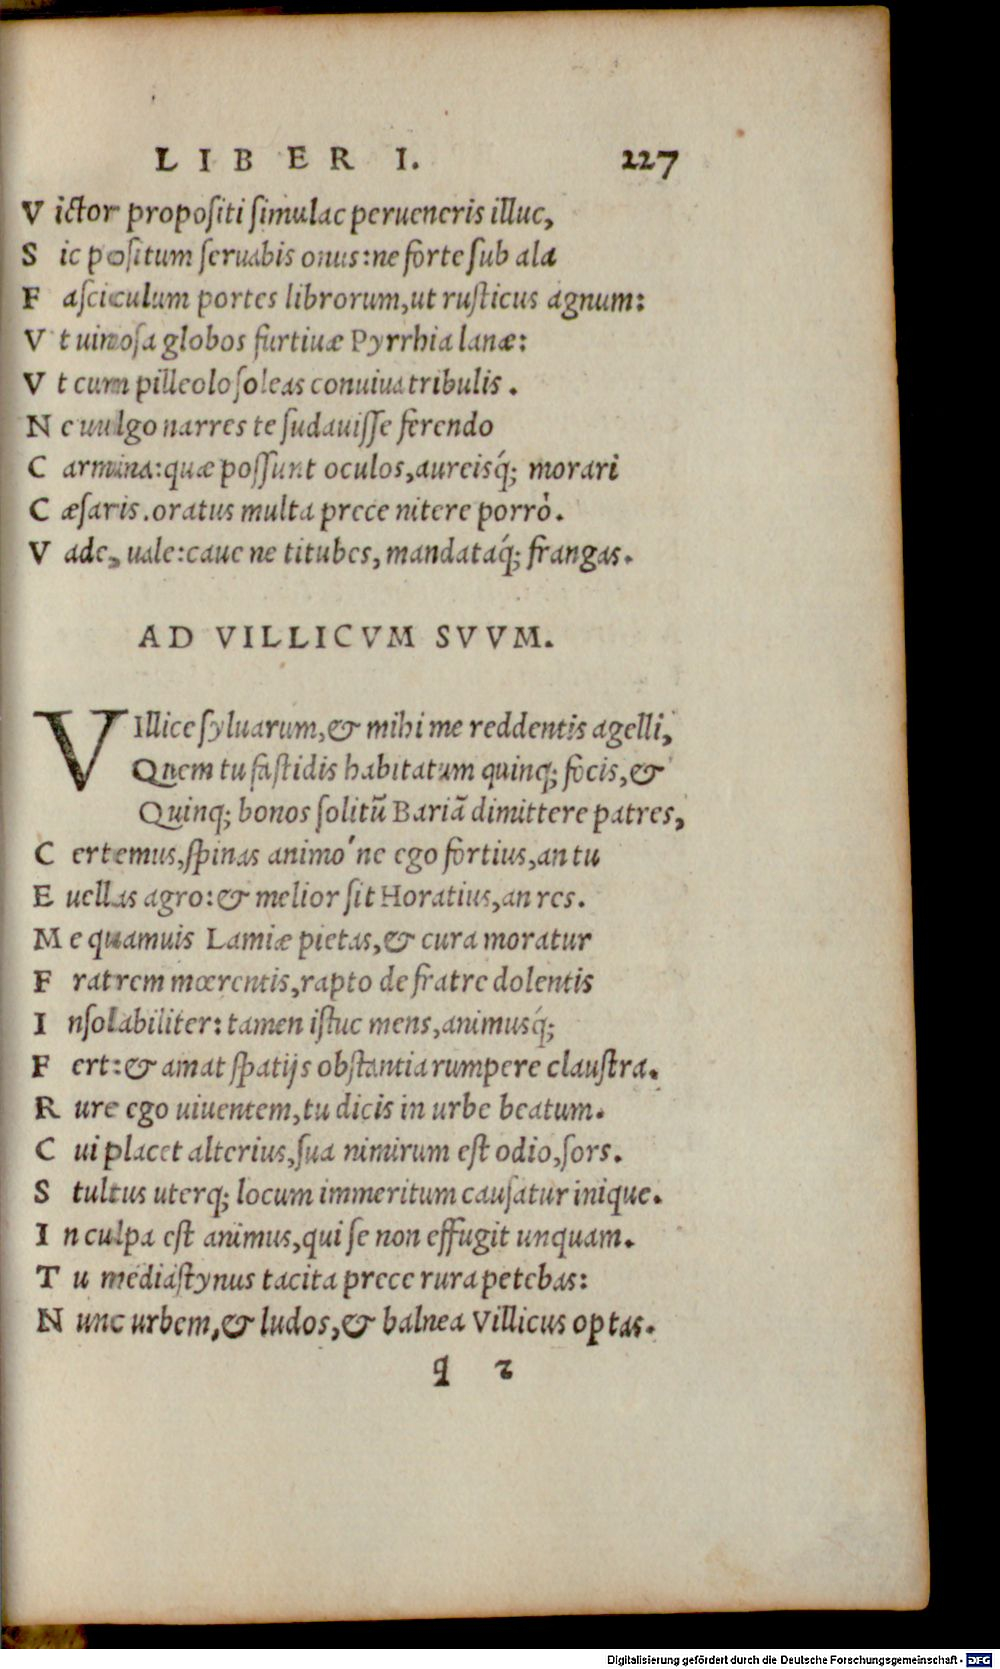 LIBER I. 227
Victor propoſiti ſimulac perueneris illuc,
Sic poſitum ſeruabis onus: ne forte ſub ala
Faſciculum portes librorum, ut ruſticus agnum:
Vt uinoſa globos furtiuæ Pyrrhia lanæ:
Vt cum pilleolo ſoleas conuiua tribulis.
Ne uulgo narres te ſudauiſſe ferendo
Carmina: quæ poſſunt oculos, aureisq́; morari
Cæſaris. oratus multa prece nitere porrò.
Vade, uale: caue ne titubes, mandataq́; frangas.
AD VILLICVM SVVM.
VIllice ſyluarum, & mihi me reddentis agelli,
Quem tu faſtidis habitatum quinq; focis, &
Quinq; bonos ſolitū Bariā dimittere patres,
Certemus, ſpinas animo´ne ego fortius, an tu
Euellas agro: & melior ſit Horatius, an res.
Me quamuis Lamiæ pietas, & cura moratur
Fratrem mœrentis, rapto de fratre dolentis
Inſolabiliter: tamen iſtuc mens, animusq́;
Fert: & amat ſpatijs obſtantia rumpere clauſtra.
Rure ego uiuentem, tu dicis in urbe beatum.
Cui placet alterius, ſua nimirum eſt odio, ſors.
Stultus uterq; locum immeritum cauſatur inique.
In culpa eſt animus, qui ſe non effugit unquam.
Tu mediaſtynus tacita prece rura petebas:
Nunc urbem, & ludos, & balnea Villicus optas.
q 2
Digitalisierung gefördert durch die Deutsche Forschungsgemeinschaft - DFG